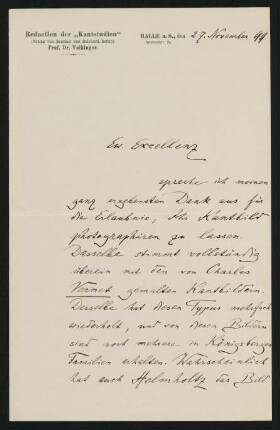 Redaction der „Kantstudien"
(Verlag von Reuther und Reichard, Berlin)
Prof. Dr. Vaihinger.
HALLE a. S., den 27. November 99
Ew. Excellenz
spreche ich meinen
ganz ergebensten Dank aus für
die Erlaubnis, Ihr Kantbild
photographiren zu lassen.
Dasselbe stimmt vollständig
überein mit den von Charles
Vernet gemalten Kantbildern.
Derselbe hat diesen Typus mehrfach
wiederholt, und von diesen Bildern
sind noch mehrere in Königsberger
Familien erhalten. Wahrscheinlich
hat auch Helmholtz das Bild